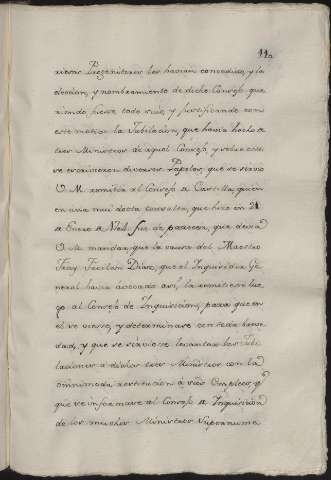 110
riosos Progenitores les havian concedido, y la
eleccion, y nombramiento de dicho Consejo, que
riendo fuese todo suio, y justificando con
este motivo la Jubilacion, que havia hecho a
tres Ministros de aquel Consejo y sobre esto
se escribieron diversos Papeles, que se sirvio
V. M. remitir al Consejo de Castilla, quien
en una mui docta consulta, que hizo en 21
de Enero de fue de parecer, que devia
V. M. mandar, que la causa del Maestro
Fray Froilan Diaz, que el Inquisidor Ge
neral havia avocado asi, la remitiese lue
go al Consejo de Inquisicion, para que en
el se viese, y determinase con toda breve
dad, y que se sirviese levantar las Jubi
laciones a dichos tres Ministros con la
omnimoda restitucion a sus Empleos, y
que se informase al Consejo de Inquisicion
de los muchos Ministros Supernume